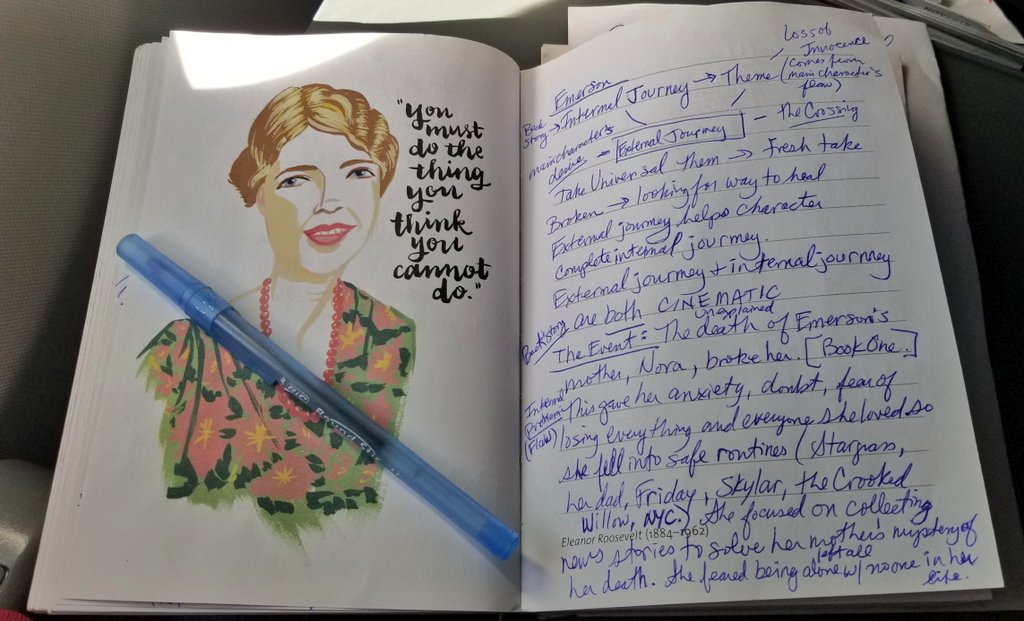 "You
must
do the
thing
you
think
you
cannot
do."
BIC Round Stic
Loss of
Innocence
Emerson
(comes from
main character's
flaw)
Back
Story → Internal Journey → Theme
main character's
desire - [External Journey] - the Crossing
Take Universal Them → Fresh take
Broken → looking for way to heal
External journey helps character
complete internal journey.
External journey + internal journey
are both CINEMATIC
Backstory
unexplained
The Event: The death of Emerson's
mother, Nora, broke her. [Book One.]
Internal
Problem
(Flaw)
This gave her anxiety, doubt, fear of
losing everything and everyone she loved so
she fell into safe routines (Stargrass,
her dad, Friday, Skylar, the Crooked
Willow, NYC.) She focused on collecting
Eleanor Roosevelt (1884–1962)
news stories to solve her mother's mystery of
her death. She feared being left all alone w/ no one in her
life.